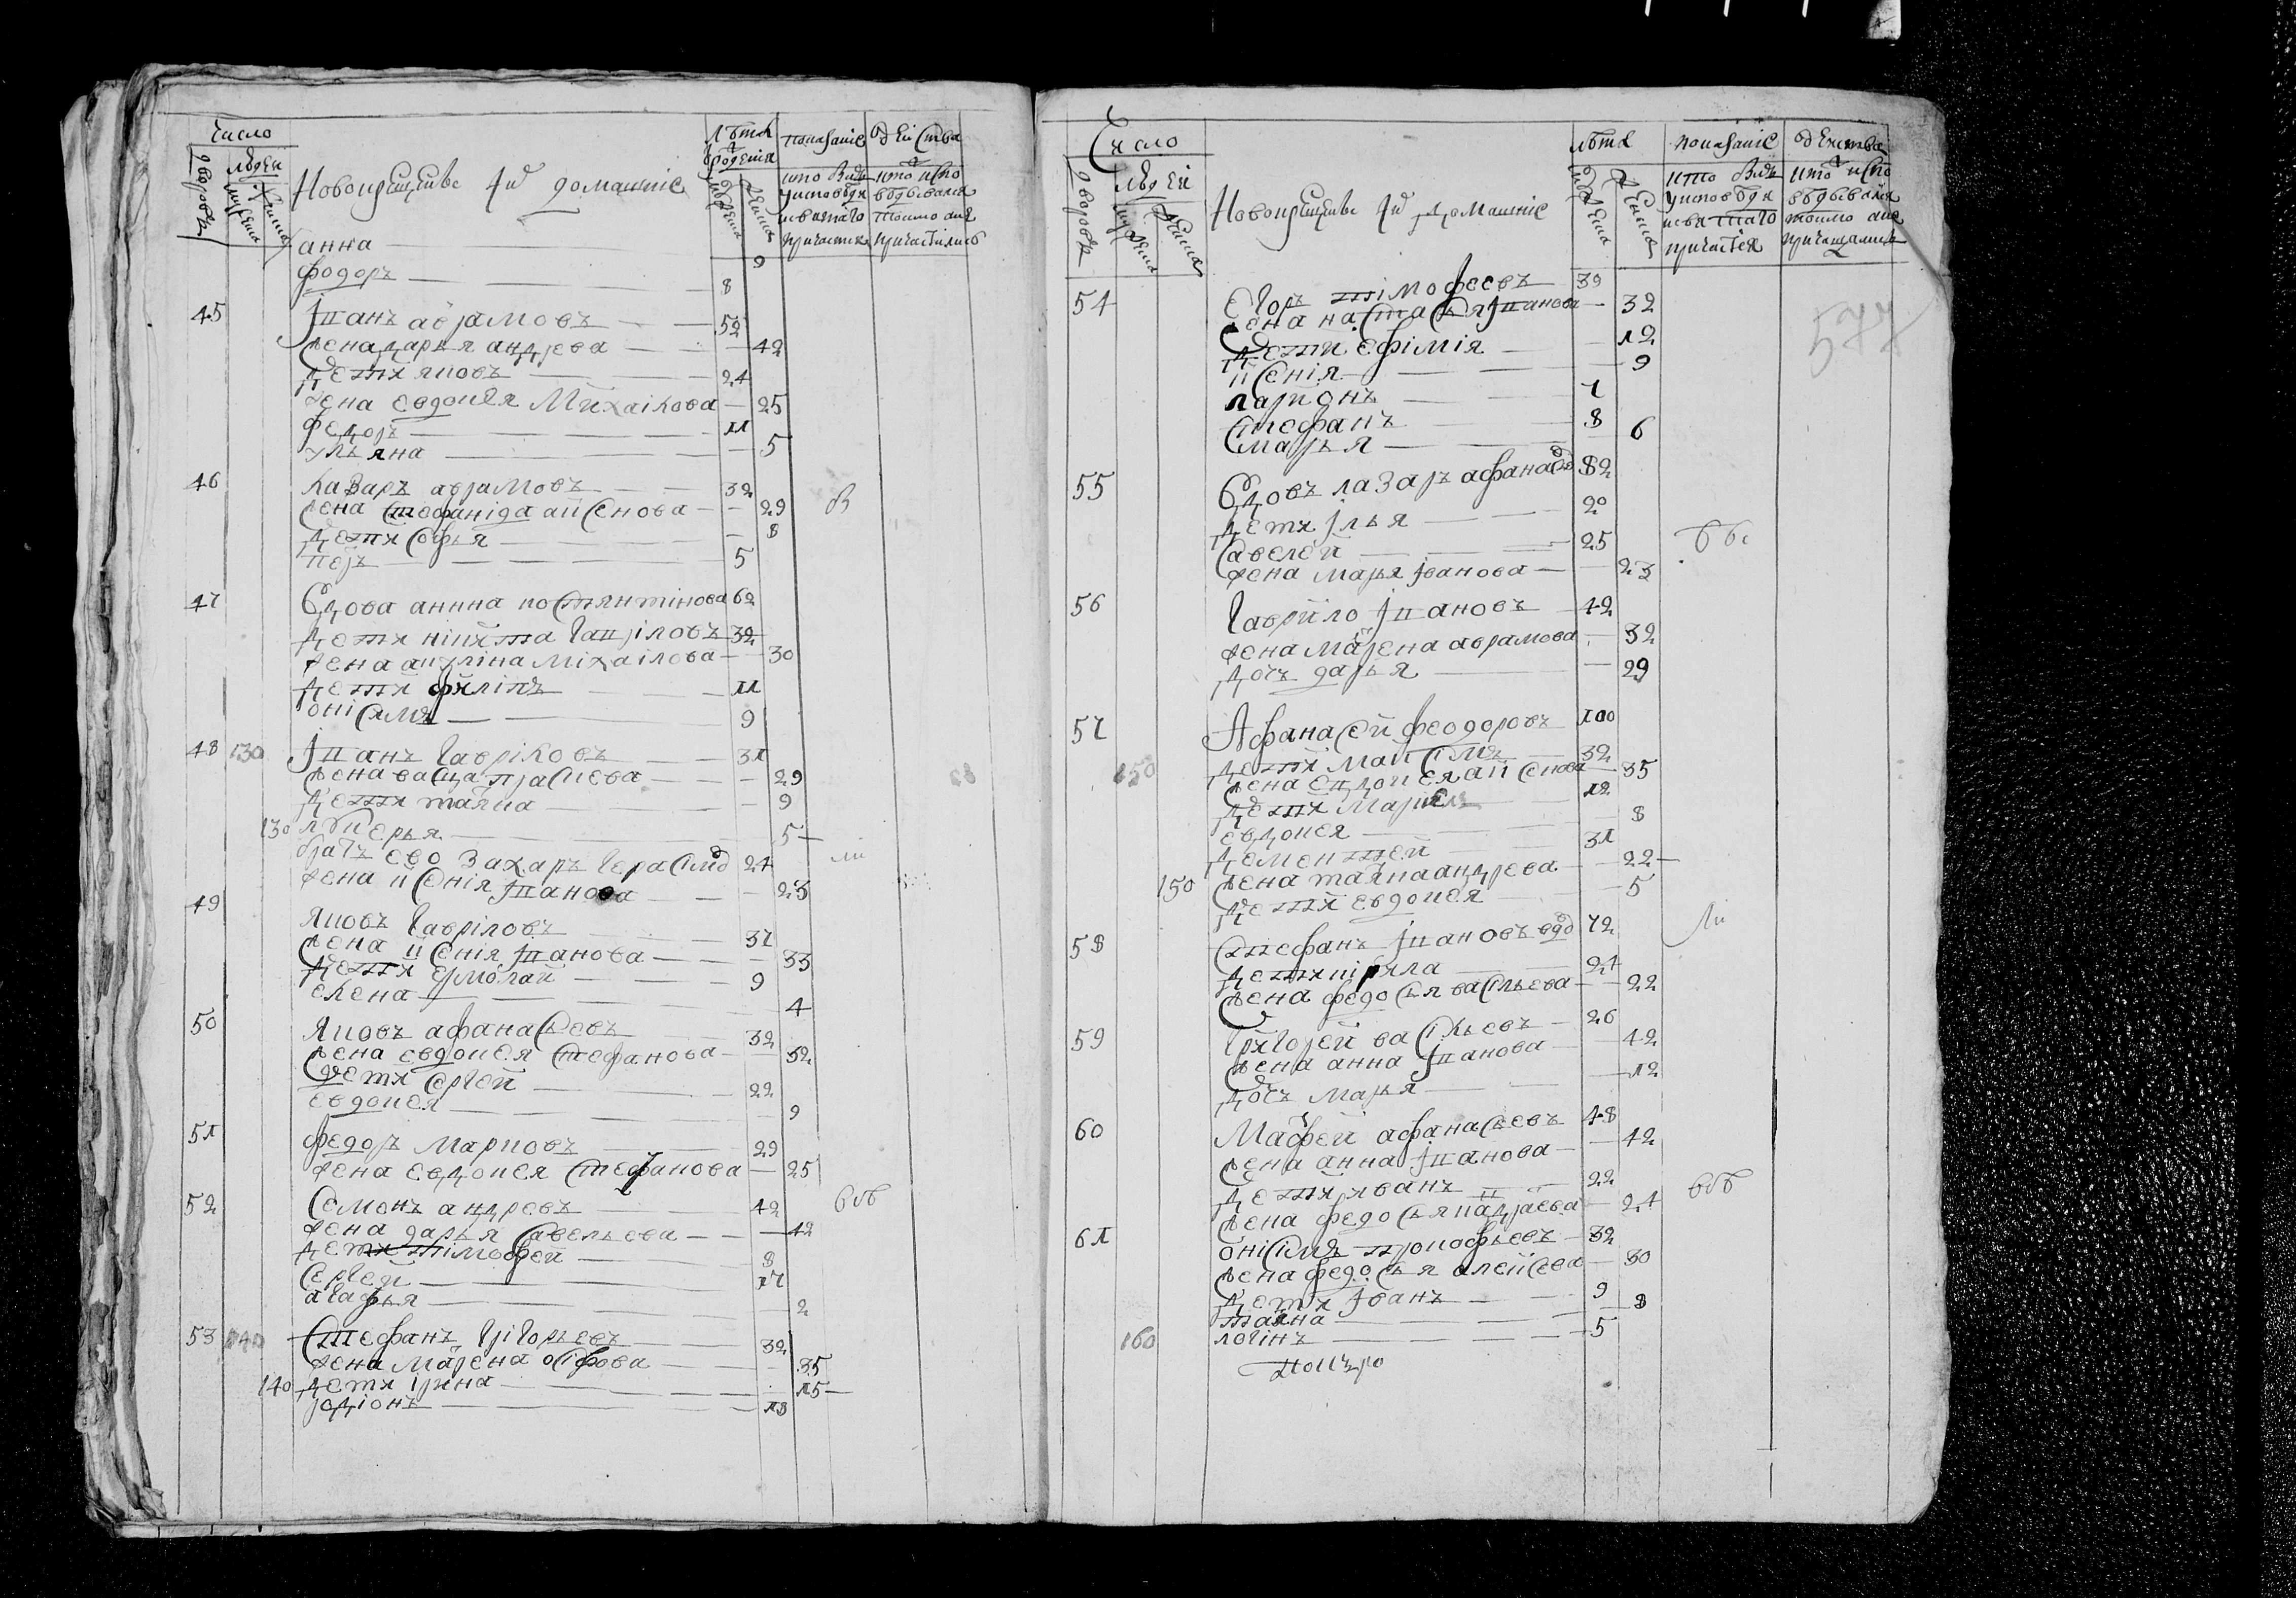 Число
дворовъ
людей
мужеска
женска
Новокрещены и домашние
лѣта
рождения
мужеска
женска
показание
кто былъ
у исповѣди
и святаго
причастия
действа
кто испо
вѣдывался
токмо а не
причастились
анна 9
Федоръ 8
45 Иванъ аврамовъ 52
жена дарья андрева 42
дети яковъ 24
жена евдокея Михаилова 25
Федоръ 11
ульяна 5
46 Назаръ аврамовъ 32
жена стефанида аксенова 29
дети софья 8
петръ 5
47 Вдова аннна костянтинова 62
дети никита гавриловъ 32
жена акулина михаилова 30
дети филипъ 11
онисимъ 9
48 130 Иванъ гавриловъ 31
жена васса 29
дети татяна 9
130 лукерья 5
братъ ево Захаръ герасимо 24
жена ксения иванова 23
49
яковъ гавриловъ 37
жена ксения иванова 33
дети ермолай 9
елена 4
50 яковъ афанасьевъ 32
жена евдокея стефанова 32
дети сергей 22
евдокея 9
51 федоръ марковъ 29
жена евдокея стефанова 25
52 Семонъ андревъ 42
жена дарья савельева 42
дети тимофей 8
Сергей 17
агафья 2
53 140 Стефанъ григорьевъ 32
жена марена осифова 35
140 дети ирина 15
родионъ 13
Число
дворовъ
людей
мужеска
женска
Новокрещены и домашние
лѣта
мужеска
женска
показание
кто былъ
у исповѣди
и святаго
причастия
действа
кто испо
вѣдывался
токмо а не
причащались
54 Егоръ тимофеевъ 39
жена настасья иванова 32
дети ефимия 12
ксения 9
ларионъ 7
стефанъ 8
марья 6
55 Вдовъ лазаръ афанасо 82
дети илья 20
савелей 25
жена марья иванова 23
56 гаврило ивановъ 42
жена марена аврамова 32
дочь дарья 29
57 Афанасей феодоровъ 100
дети максимъ 32
150 жена евдокея аксенова 35
дети 12
евдокея 8
дементей 31
жена татяна андрева 22
150 дети евдокея 5
58 стефанъ ивановъ вдо 72
дети кирила 24
жена федосья васильева 22
59 григорей васильевъ 26
жена анна иванова 42
дочь марья 12
60 Матфей афанасьевъ 48
жена анна иванова 42
дети иванъ 22
жена федосья 24
61 онисимъ прокофьевъ 32
жена федосья алексева 30
дети иванъ 9
татяна 8
160 логинъ 5